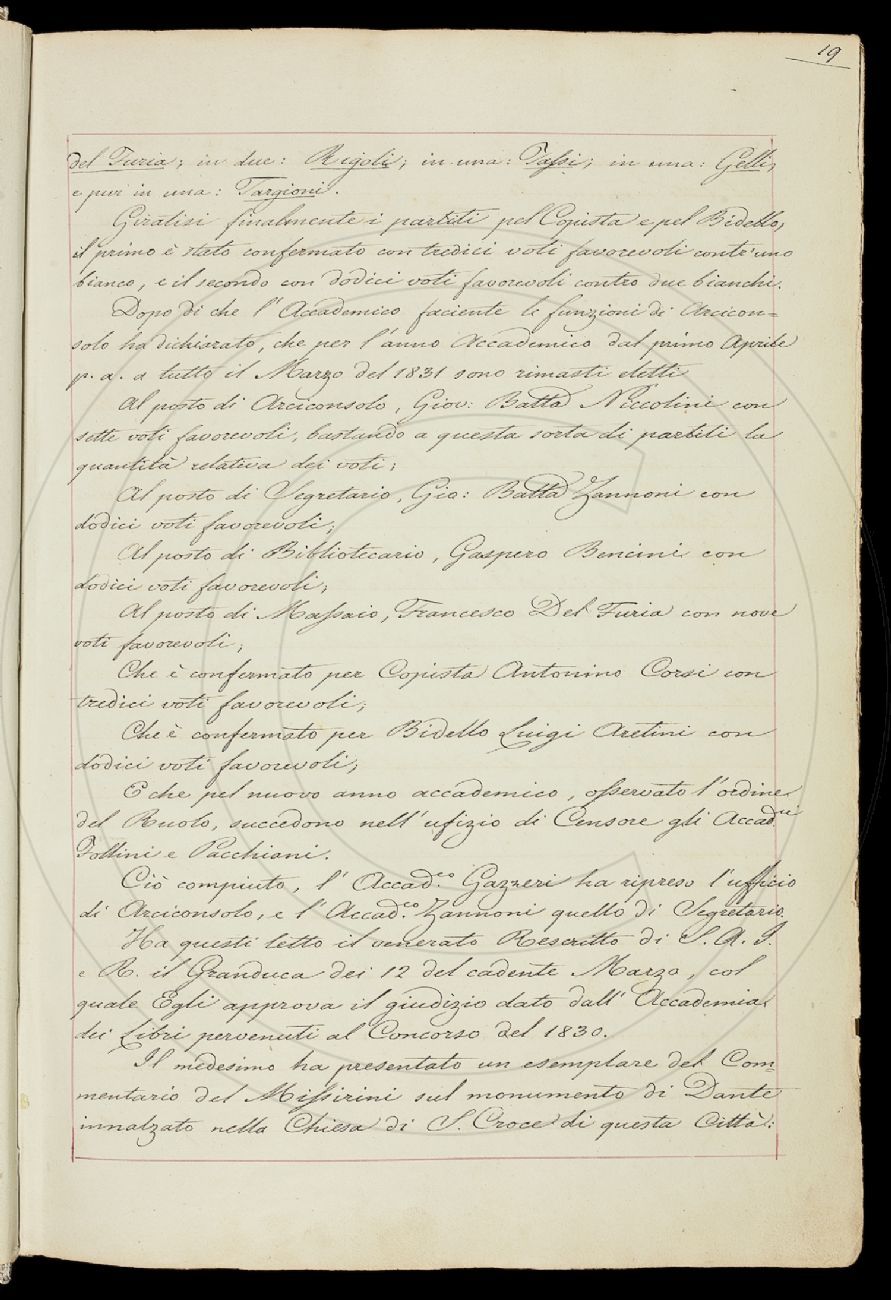 19
del Furia; in due: Rigoli; in una: Tassi; in una: Gelli;
e pur in una: Targioni.
Giratisi finalmente i partiti pel Copista e pel Bidello,
il primo è stato confermato con tredici voti favorevoli contr'uno
bianco, e il secondo con dodici voti favorevoli contro due bianchi.
Dopo di che l'Accademico faciente le funzioni di Arcicon=
solo ha dichiarato, che per l'anno Accademico dal primo Aprile
p. a. a tutto il Marzo del 1831 sono rimasti eletti
Al posto di Arciconsolo, Giov: Batta Niccolini con
sette voti favorevoli, bastando a questa sorta di partiti la
quantità relativa dei voti;
Al posto di Segretario, Gio: Batta Zannoni con
dodici voti favorevoli;
Al posto di Bibliotecario, Gaspero Bencini con
dodici voti favorevoli;
Al posto di Massaio, Francesco Del Furia con nove
voti favorevoli;
Che è confermato per Copista Antonino Corsi con
tredici voti favorevoli;
Che è confermato per Bidello Luigi Aretini con
dodici voti favorevoli;
E che pel nuovo anno accademico, osservato l'ordine
del Ruolo, succedono nell'ufizio di Censore gli Accad.ci
Follini e Pacchiani.
Ciò compiuto, l'Accad.co Gazzeri ha ripreso l'ufficio
di Arciconsolo, e l'Accad.co Zannoni quello di Segretario.
Ha questi letto il venerato Rescritto di S. A. I.
e R. il Granduca dei 12 del cadente Marzo, col
quale Egli approva il giudizio dato dall'Accademia
dei Libri pervenuti al Concorso del 1830.
Il medesimo ha presentato un esemplare del Com=
mentario del Missirini sul monumento di Dante
innalzato nella Chiesa di S. Croce di questa Città: